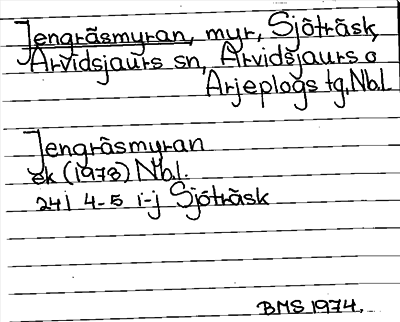 Jengråsmyran, myr, Sjöträsk,
Arvidsjaurs sn, Arvidsjaurs o
Arjeplogs tg, Nbl.
Jengråsmyran
ek (1973) Nbl.
24i 4-5 i-j Sjöträsk
BMS 1974.